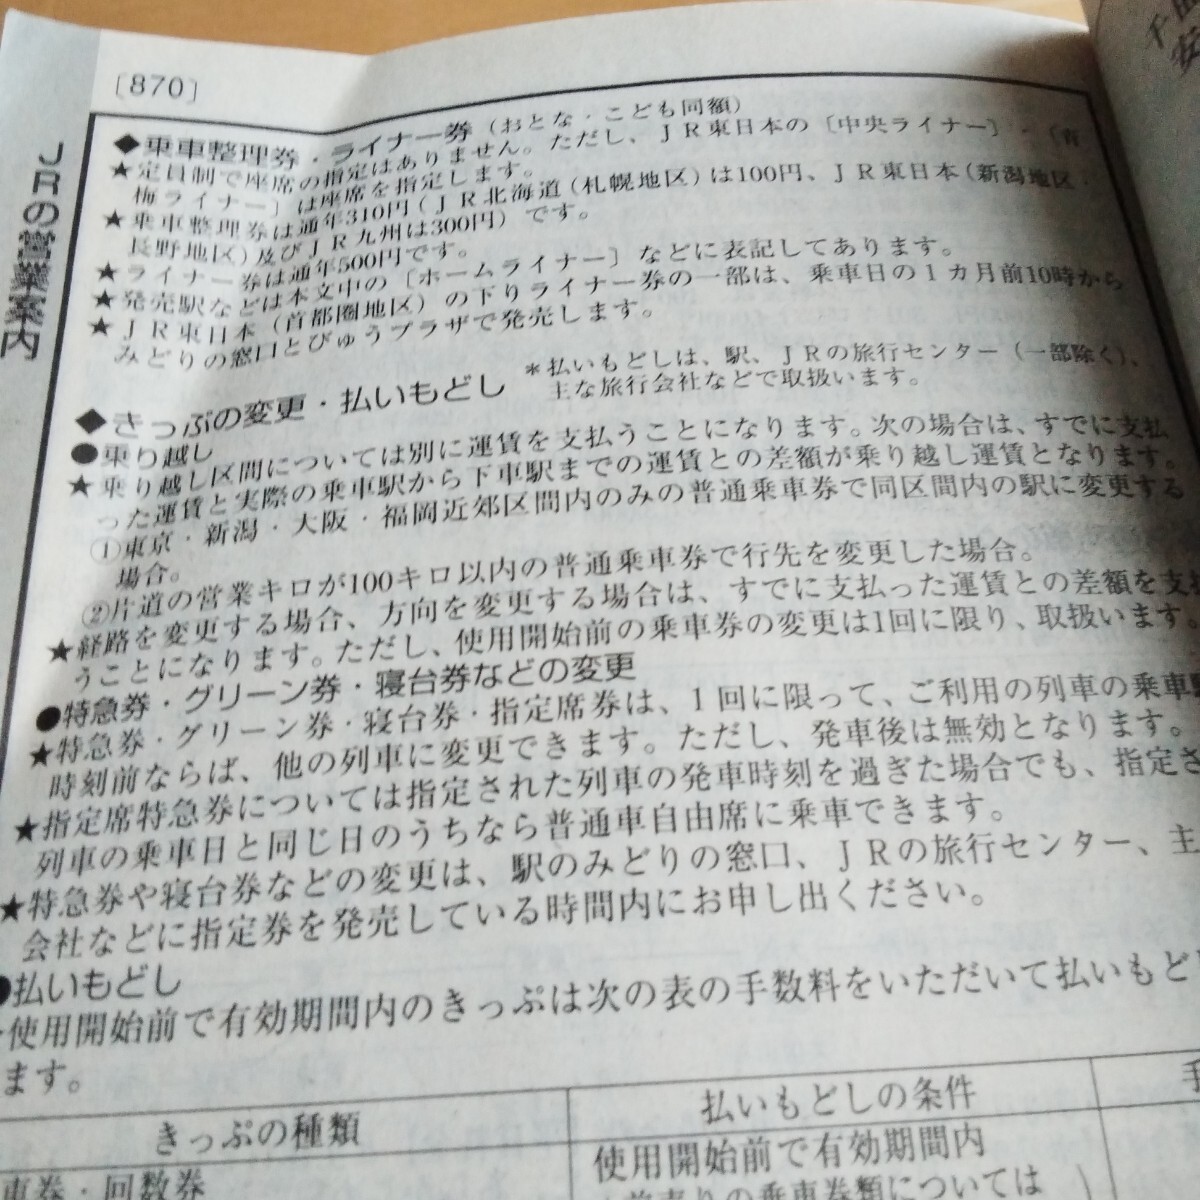 [870]
JRの営業案内
◆乗車整理券・ライナー券(おとな・こども同額)
★定員制で座席の指定はありません。ただし、JR東日本の〔中央ライナー〕・〔青
梅ライナー〕は座席を指定します。
★乗車整理券は通年310円(JR北海道(札幌地区)は100円、JR東日本(新潟地区・
長野地区)及びJR九州は300円)です。
★ライナー券は通年500円です。
★発売駅などは本文中の〔ホームライナー〕などに表記してあります。
★JR東日本(首都圏地区)の下りライナー券の一部は、乗車日の1カ月前10時から
みどりの窓口とびゅうプラザで発売します。
◆きっぷの変更・払いもどし
*払いもどしは、駅、JRの旅行センター(一部除く)、
主な旅行会社などで取扱います。
●乗り越し
★乗り越し区間については別に運賃を支払うことになります。次の場合は、すでに支払
った運賃と実際の乗車駅から下車駅までの運賃との差額が乗り越し運賃となります。
①東京・新潟・大阪・福岡近郊区間内のみの普通乗車券で同区間内の駅に変更する
場合。
②片道の営業キロが100キロ以内の普通乗車券で行先を変更した場合。
★経路を変更する場合、方向を変更する場合は、すでに支払った運賃との差額を支払
うことになります。ただし、使用開始前の乗車券の変更は1回に限り、取扱います。
●特急券・グリーン券・寝台券などの変更
★特急券・グリーン券・寝台券・指定席券は、1回に限って、ご利用の列車の乗車駅
時刻前ならば、他の列車に変更できます。ただし、発車後は無効となります。
★指定席特急券については指定された列車の発車時刻を過ぎた場合でも、指定さ
列車の乗車日と同じ日のうちなら普通車自由席に乗車できます。
★特急券や寝台券などの変更は、駅のみどりの窓口、JRの旅行センター、主
会社などに指定券を発売している時間内にお申し出ください。
●払いもどし
使用開始前で有効期間内のきっぷは次の表の手数料をいただいて払いもどし
ます。
きっぷの種類
払いもどしの条件
手
車券・回数券
使用開始前で有効期間内
前売りの乗車券類については